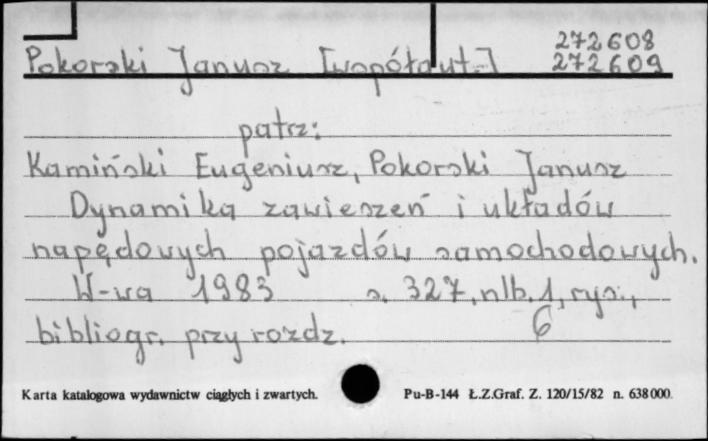 272608
Pokorski Janusz [współaut.] 272609
patrz:
Kamiński Eugeniusz, Pokorski Janusz
Dynamika zawieszeń i układów
napędowych pojazdów samochodowych.
W-wa 1983 s. 327, nlb. 1, rys.,
6
bibliogr. przy rozdz.
Karta katalogowa wydawnictw ciągłych i zwartych. Pu-B-144 Ł.Z.Graf. Z. 120/15/82 n. 638000.